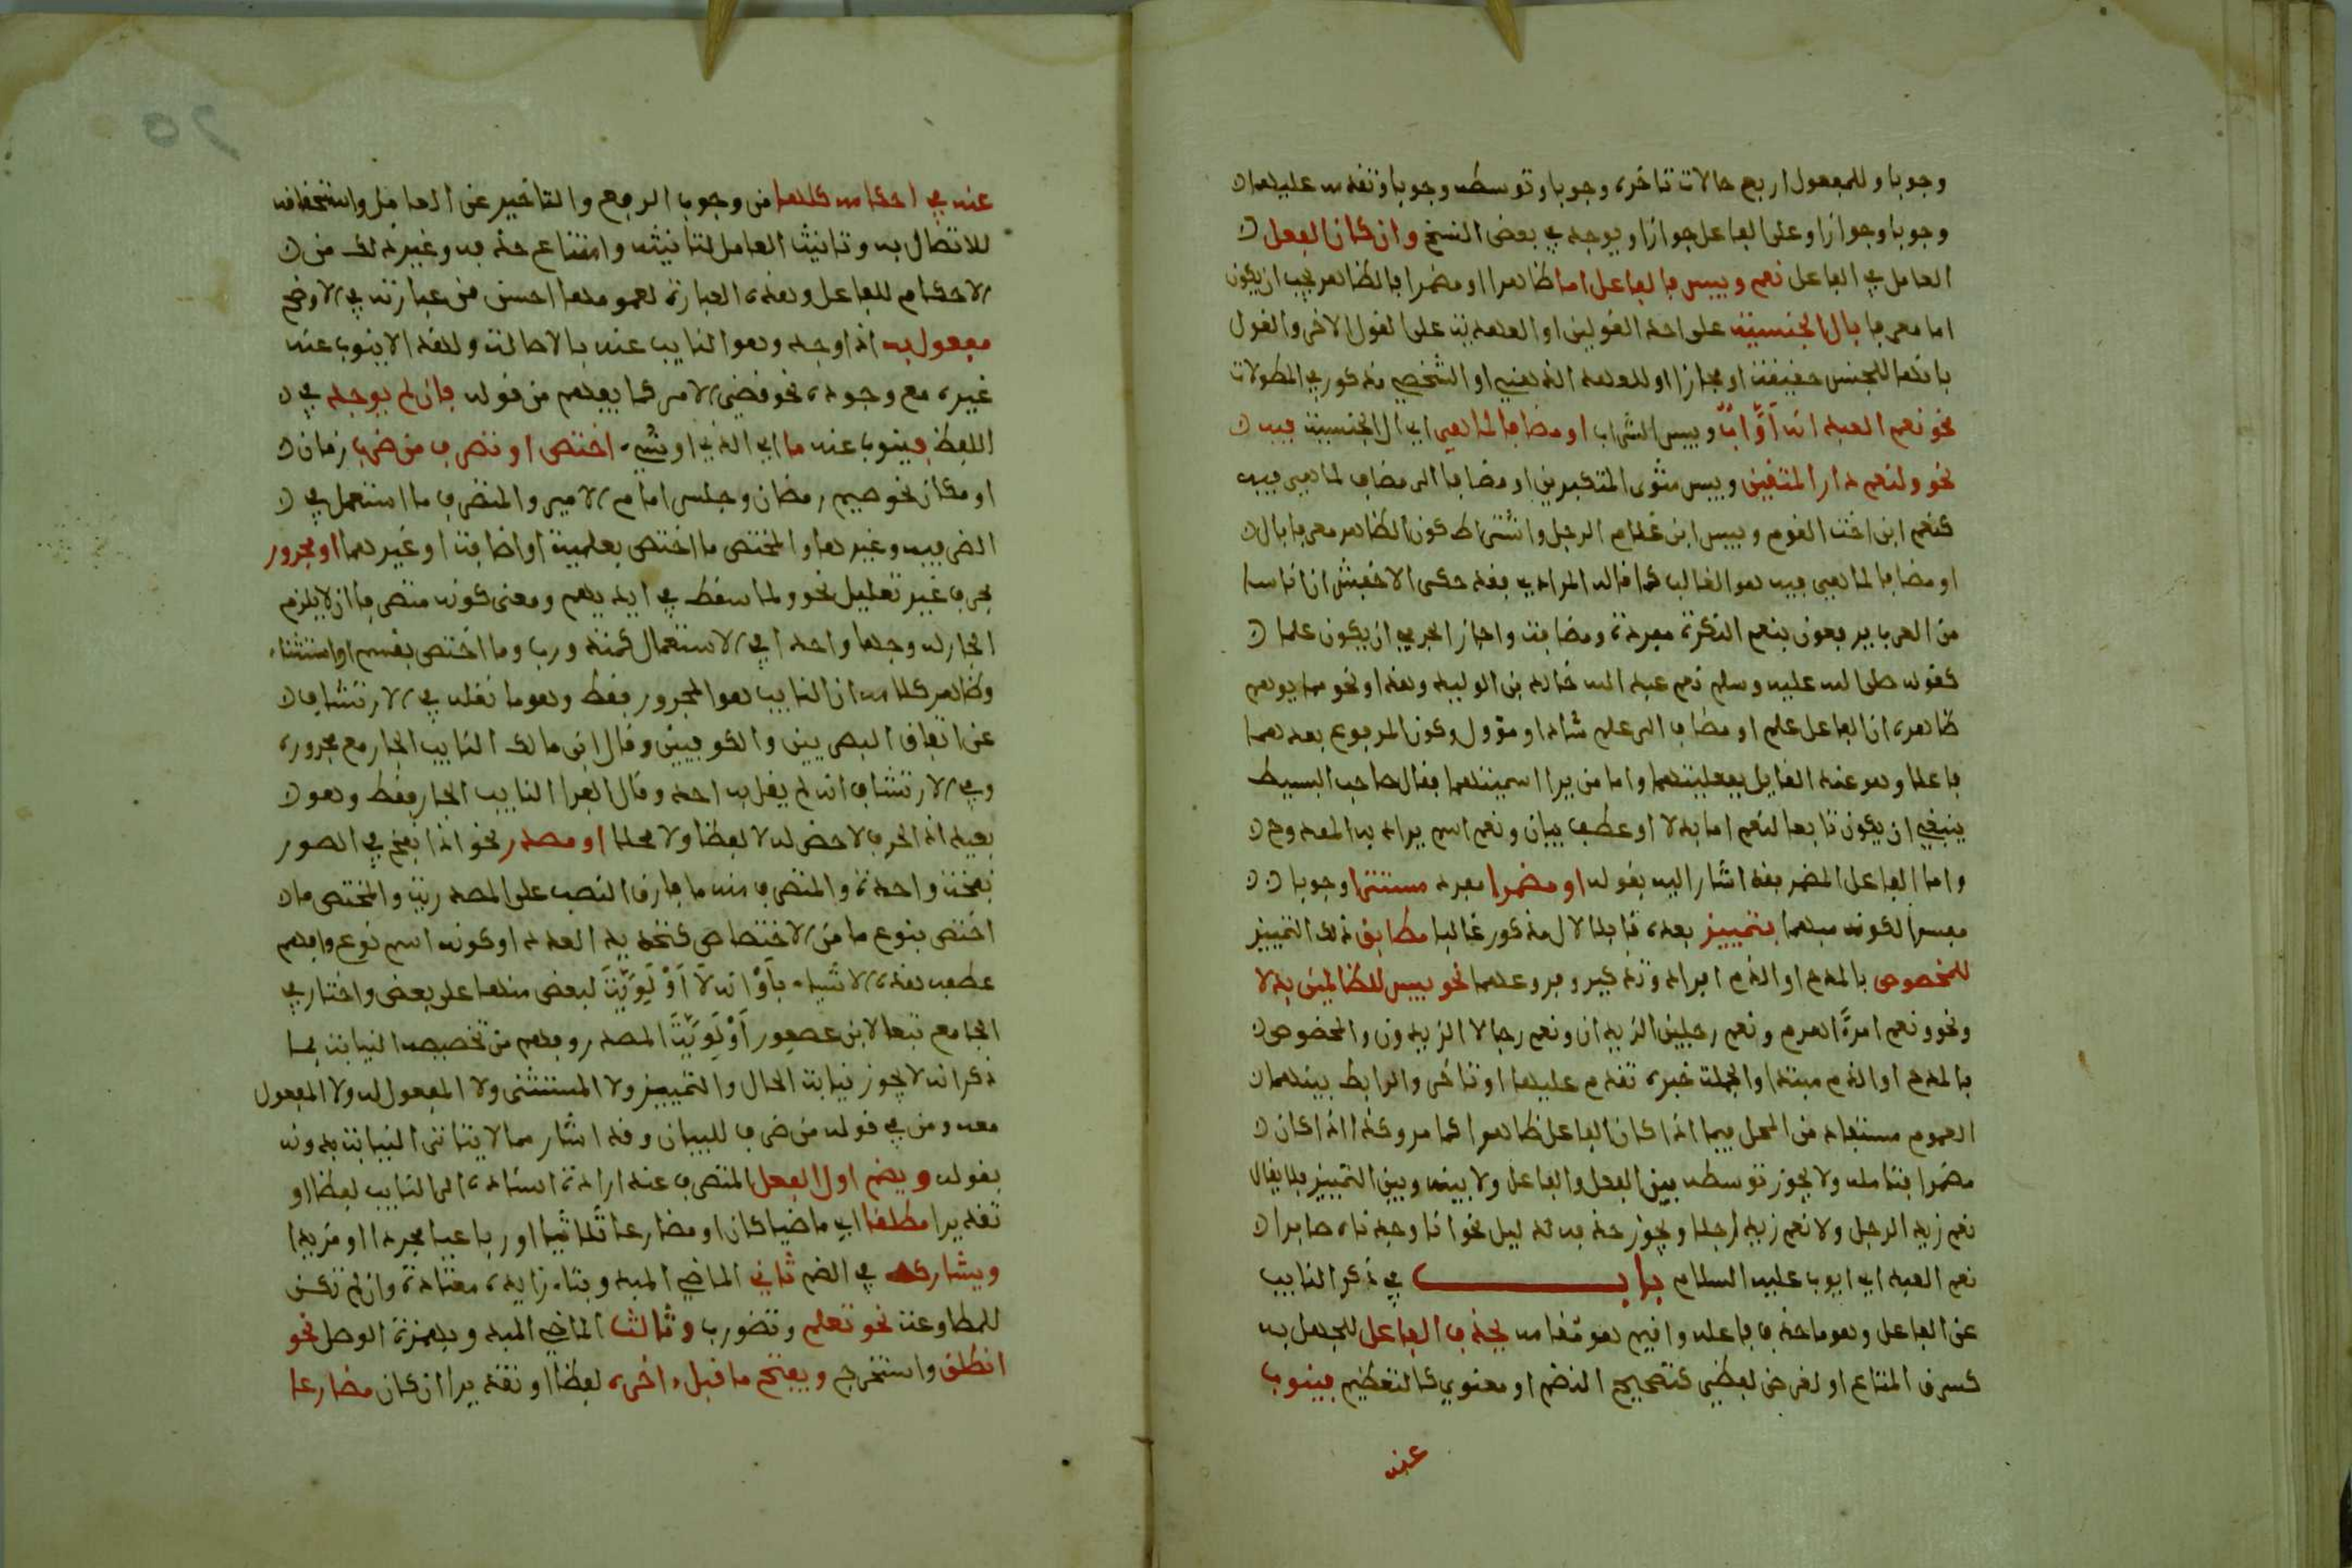 وجوبا وللمفعول اربع حالات تاخره وجوبا وتوسطه وجوبا وتقدمه عليهما
وجوبا وجوازا وعلى الفاعل جوازا ويوجد في بعض النسخ وان كان الفعل
العامل في الفاعل نعم وبيس فالفاعل اما ظاهرا او مضمرا فالظاهر يجب ان يكون
اما معرفا بال الجنسية على احد القولين او العهدية على القول الاخر والقول
بانها للجنس حقيقة او مجازا او للعهد الذهني او الشخصي مذكور في المطولات
نحو نعم العبد انه اواب وبيس الشراب او مضافا لما هي اي ال الجنسية فيه
نحو ولنعم دار المتقين وبيس مثوى المتكبرين او مضافا الى مضاف لما هي فيه
كنعم ابن اخت القوم وبيس ابن غلام الرجل واشتراط كون الظاهر معرفا بال
او مضافا لما هي فيه هو الغالب كما قاله المرادي فقد حكى الاخفش ان ناسا
من العرب يرفعون بنعم النكرة مفردة ومضافة واجاز الجرمي ان يكون علما
كقوله صلى الله عليه وسلم نعم عبد الله خالد بن الوليد وهذا ونحو مما يوهم
ظاهره ان الفاعل علم او مضاف الى علم شاذ او مؤول وكون المرفوع بعدهما
فاعلا وهو عند القايل بفعليتهما واما من يرا اسميتهما فقال صاحب البسيط
ينبغي ان يكون تابعا لنعم اما بدلا او عطف بيان ونعم اسم يراد به الممدوح
واما الفاعل المضمر فقد اشار اليه بقوله او مضمرا مفرد مستترا وجوبا
مفسرا لكونه مبهما بتمييز بعده قابلا لال مذكور غالبا مطابق ذلك التمييز
للمخصوص بالمدح او الذم افراد وتذكير وفروعهما نحو بيس للظالمين بدلا
ونحو ونعم امرءا هرم ونعم رجلين الزيدان ونعم رجالا الزيدون والمخصوص
بالمدح او الذم مبتدا والجملة خبره تقدم عليها او تاخر والرابط بينهما
العموم مستفاد من المحل فيما اذا كان الفاعل ظاهرا كما مر وكذا اذا كان
مضمرا فتامله ولا يجوز توسطه بين الفعل والفاعل ولا بينه وبين التمييز فلا يقال
نعم زيد الرجل ولا نعم زيد رجلا ويجوز حذفه لدليل نحو انا وجدناه صابرا
نعم العبد اي ايوب عليه السلام باب في ذكر النايب
عن الفاعل وهو ما حذف فاعله واقيم هو مقامه يحذف الفاعل للجهل به
كسرق المتاع او لغرض لفظي كتصحيح النظم او معنوي كالتعظيم فينوب
عنه
عنه في احكامه كلها من وجوب الرفع والتاخير عن العامل واستحقاقه
للاتصال به وتانيث العامل لتانيثه وامتناع حذفه وغير ذلك من
الاحكام للفاعل وهذه العبارة لعمومها احسن من عبارته في الاوضح
مفعول به اذا وجد وهو النايب عنه بالاصالة ولهذا لا ينوب عنه
غيره مع وجوده نحو قضي الامر كما يفهم من قوله فان لم يوجد في
اللفظ فينوب عنه ما اي الذي او شيء اختص او تصرف من ضرب زمان
او مكان نحو صيم رمضان وجلس امام الامير والمتصرف ما استعمل في
الظرفية وغيرها والمختص ما اختص بعلمية او اضافة او غيرهما او مجرور
بحرف غير تعليل نحو ولما سقط في ايديهم ومعنى كونه متصرفا ان لا يلزم
الجار له وجها واحدا في الاستعمال كمنذ ورب وما اختص بقسم او استثناء
وظاهر كلامه ان النايب هو المجرور فقط وهو ما نقله في الارتشاف
عن اتفاق البصريين والكوفيين وقال ابن مالك النايب الجار مع مجروره
وفي الارتشاف انه لم يقل به احد وقال الفرا النايب الجار فقط وهو
بعيد اذ الحرف لا حض له لا لفظا ولا محلا او مصدر نحو اذا نفخ في الصور
نفخة واحدة والمتصرف منه ما فارق النصب على المصدرية والمختص ما
اختص بنوع ما من الاختصاص كتحديد العدد او كونه اسم نوع وافهم
عطف هذه الاشياء باو انه لا اولوية لبعض منها على بعض واختار في
الجامع تبعا لابن عصفور اولوية المصدر وفهم من تخصيصه النيابة بما
ذكر انه لا يجوز نيابة الحال والتمييز ولا المستثنى ولا المفعول له ولا المفعول
معه ومن في قوله من ضرب للبيان وقد اشار مما لا يتاتى النيابة بدونه
بقوله ويضم اول الفعل المتصرف عند ارادة اسناده الى النايب لفظا او
تقديرا مطلقا اي ماضيا كان او مضارعا ثلاثيا او رباعيا مجردا او مزيدا
ويشاركه في الضم ثاني الماضي المبدو بتاء زايدة معتادة وان لم تكن
للمطاوعة نحو تعلم وتضورب وثالث الماضي المبدو بهمزة الوصل نحو
انطلق واستخرج ويفتح ما قبل اخره لفظا او تقديرا ان كان مضارعا